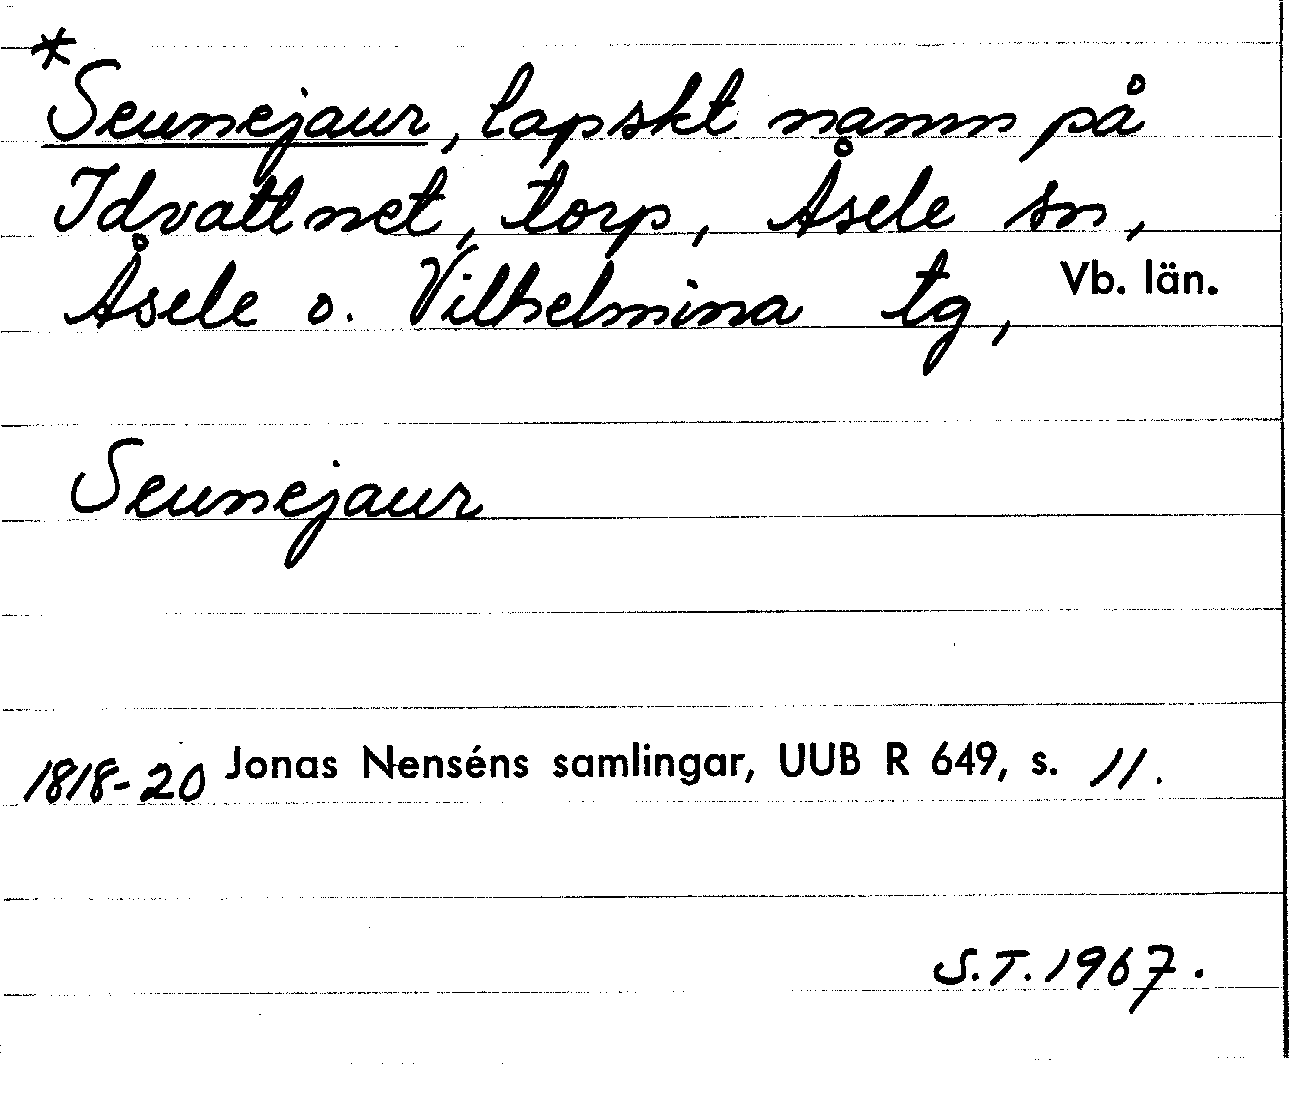 *Seunejaur, lapskt namn på
Idvattnet, torp, Åsele sn,
Åsele o. Vilhelmina tg, Vb. län.
Seunejaur
1818-20 Jonas Nenséns samlingar, UUB R 649, s. 11.
S.T. 1967.